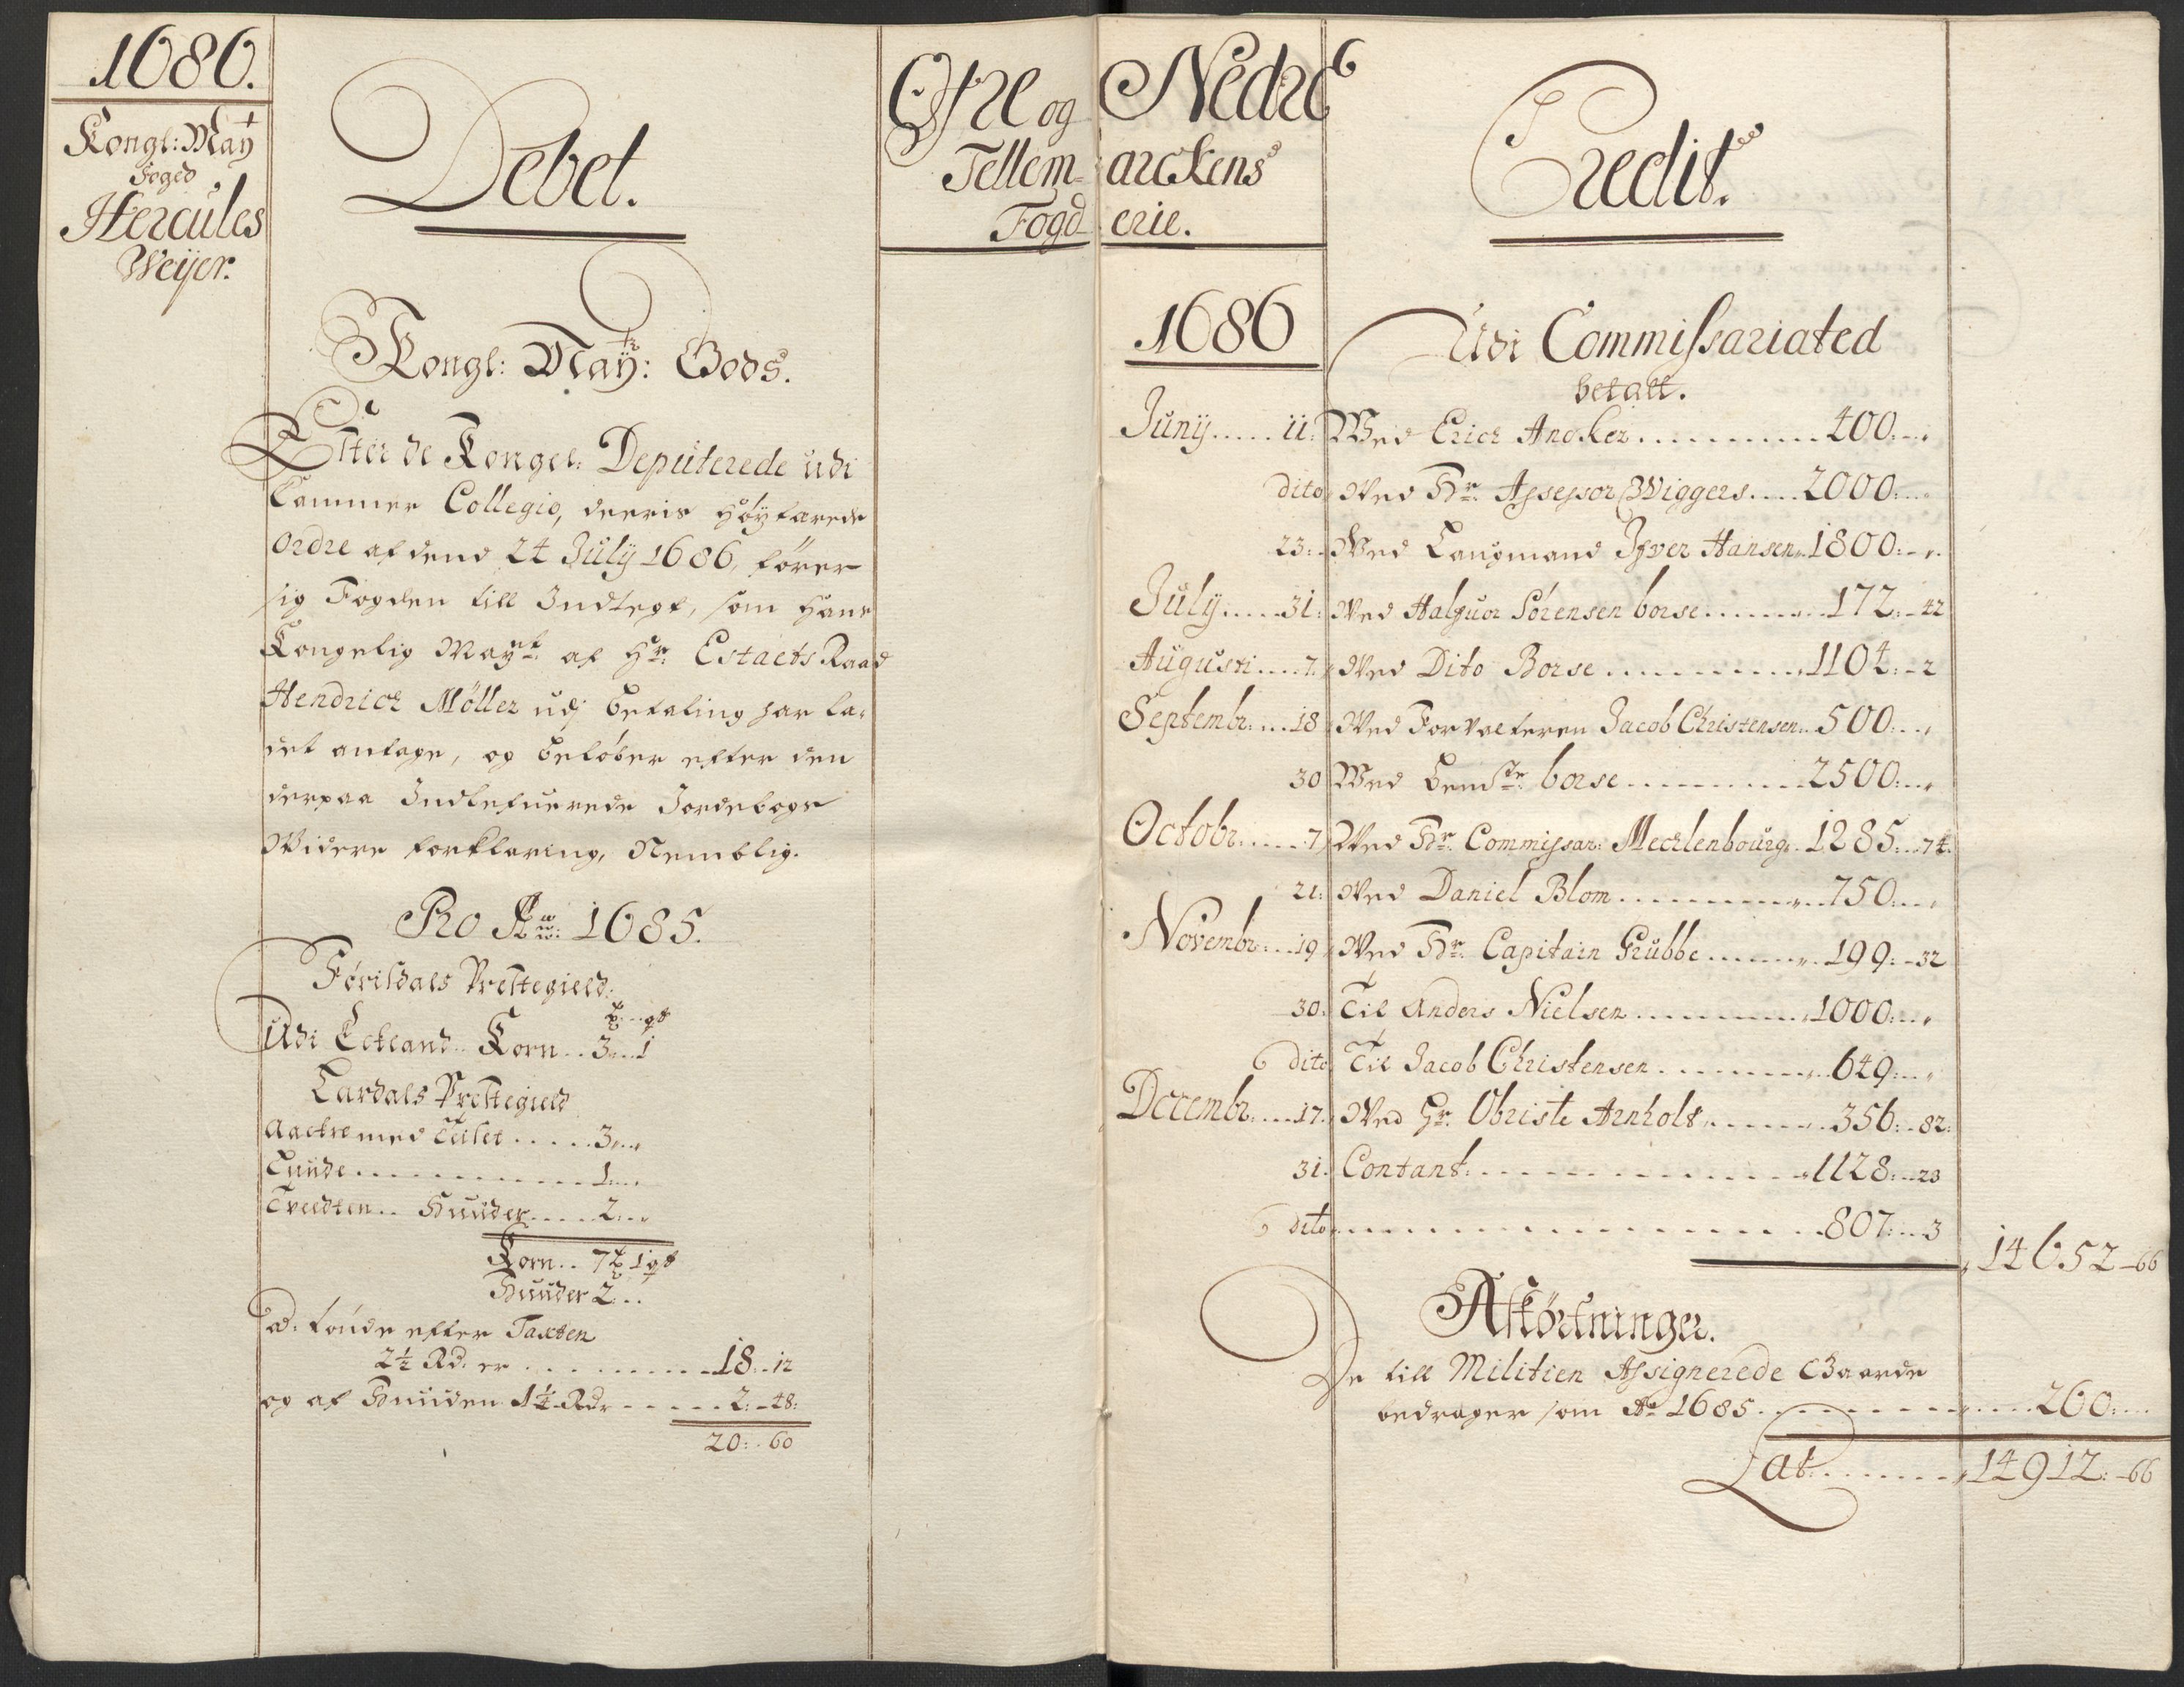 1686.
Kongl: May^t
Foged
Hercules
Weÿer.
Debet.
Kongl: Maÿ^tz: Gods.
Efter de Kongel: Deputerede udi
Cammer Collegio, deeris Höÿtarede
Ordre af dend 24 Julÿ 1686, förer
sig Fogden till Indtegt, som Hans
Kongelig Maÿ^et af H^r: Estaets Raad
Hendrich Möller udj Betaling har la-
det antage, og belöber efter den
derpaa Indlefuerede Jordebogs
Widere forklaring, Nemblig.
Pro A^o: 1685.
Förisdals Prestegield.
Udi Eckland.. Korn.. 3...1
Lardals Prestegield
Aackre med Teilet ..... 3...
Lunde ............ 1....
Tveedten.. Huuder .... 2...
Korn.. 7 1
Huuder 2...
à: tönde efter Taxten
2½ Rd. er ......... 18:..12
og af Huuden 1¼ Rdr ----- 2:..48:
20:..60
Ofre og Nedre
Tellem-arckens
Fogd-erie.
6
Credit.
1686
Udi Commissariated
betalt.
Junÿ..... 11: Wed Erich Ancker .......... 400:...
dito Wed Hr. Assessor Wiggers.... 2000:...
23: Wed Laugmand Ifver Hansen.. 1800:...
Julÿ..... 31: Wed Halfuor Sörensen borse ....... 172:..42
Augusti.... 7. Wed Dito Borse .......... 1104:..2
Septembr:... 18 Wed Forvalteren Jacob Christensen.. 500:...
30 Wed bem^te borse .......... 2500:...
Octobr..... 7 Wed Hr. Commissar: Mecklenbourg.. 1285:..74.
21: Wed Daniel Blom .......... 750:...
Novembr:... 19 Wed Hr. Capitain Grubbe ....... 199:..32
30. Til Anders Nielsen .......... 1000:...
dito Til Jacob Christensen ........ 649:...
Decembr..... 17. Wed Hr. Obriste Arnholt ....... 356:..82:
31. Contant. .............. 1128:..23
dito .................. 807:...3
14652-66
Afkörtninger.
De till Militien Assignerede Gaarde
bedrager som A^o 1685 ............. 260:...
Lat: ....... 14912:-66